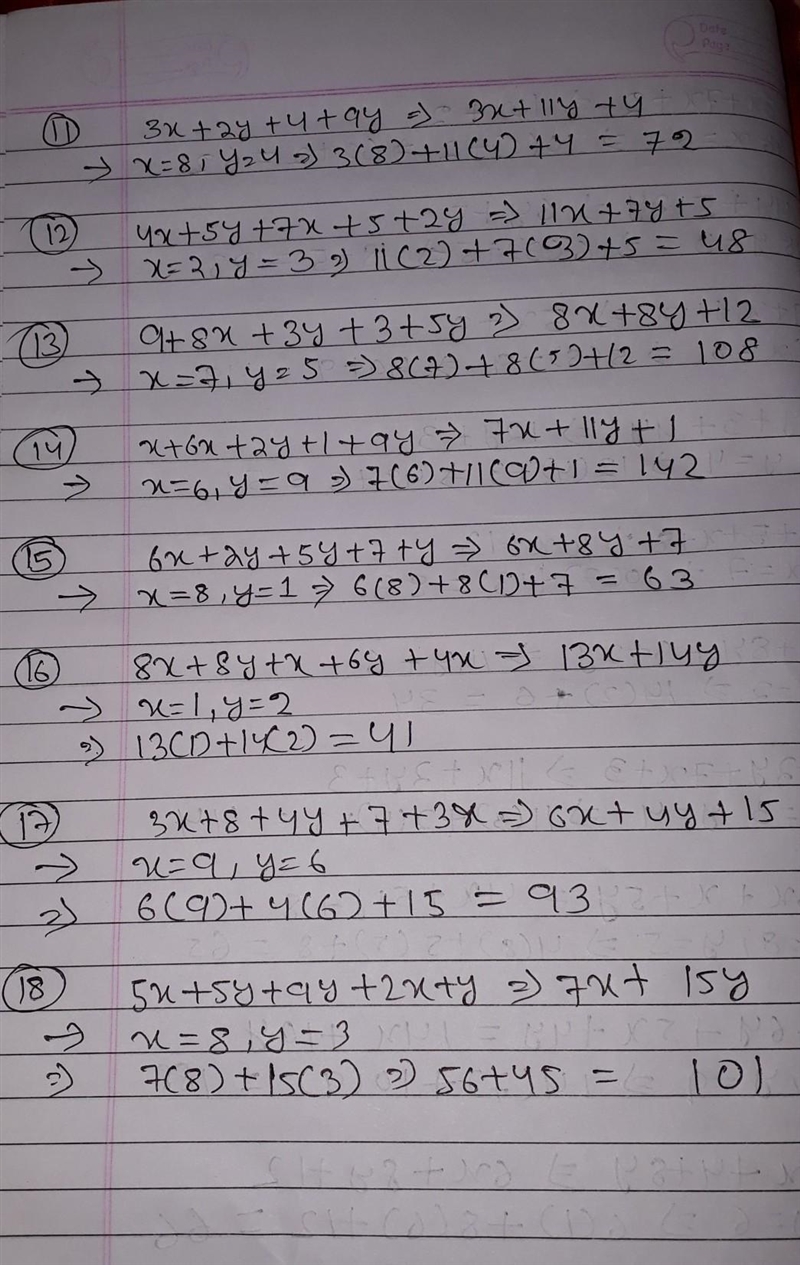 Date
Page
(11) 3x+2y+4+9y ⇒ 3x+11y+4
→ x=8, y=4 ⇒ 3(8)+11(4)+4 = 72
(12) 4x+5y+7x+5+2y ⇒ 11x+7y+5
→ x=2, y=3 ⇒ 11(2)+7(3)+5 = 48
(13) 9+8x+3y+3+5y ⇒ 8x+8y+12
→ x=7, y=5 ⇒ 8(7)+8(5)+12 = 108
(14) x+6x+2y+1+9y ⇒ 7x+11y+1
→ x=6, y=9 ⇒ 7(6)+11(9)+1 = 142
(15) 6x+2y+5y+7+y ⇒ 6x+8y+7
→ x=8, y=1 ⇒ 6(8)+8(1)+7 = 63
(16) 8x+8y+x+6y+4x ⇒ 13x+14y
→ x=1, y=2
⇒ 13(1)+14(2) = 41
(17) 3x+8+4y+7+3x ⇒ 6x+4y+15
→ x=9, y=6
⇒ 6(9)+4(6)+15 = 93
(18) 5x+5y+9y+2x+y ⇒ 7x+15y
→ x=8, y=3
⇒ 7(8)+15(3) ⇒ 56+45 = 101